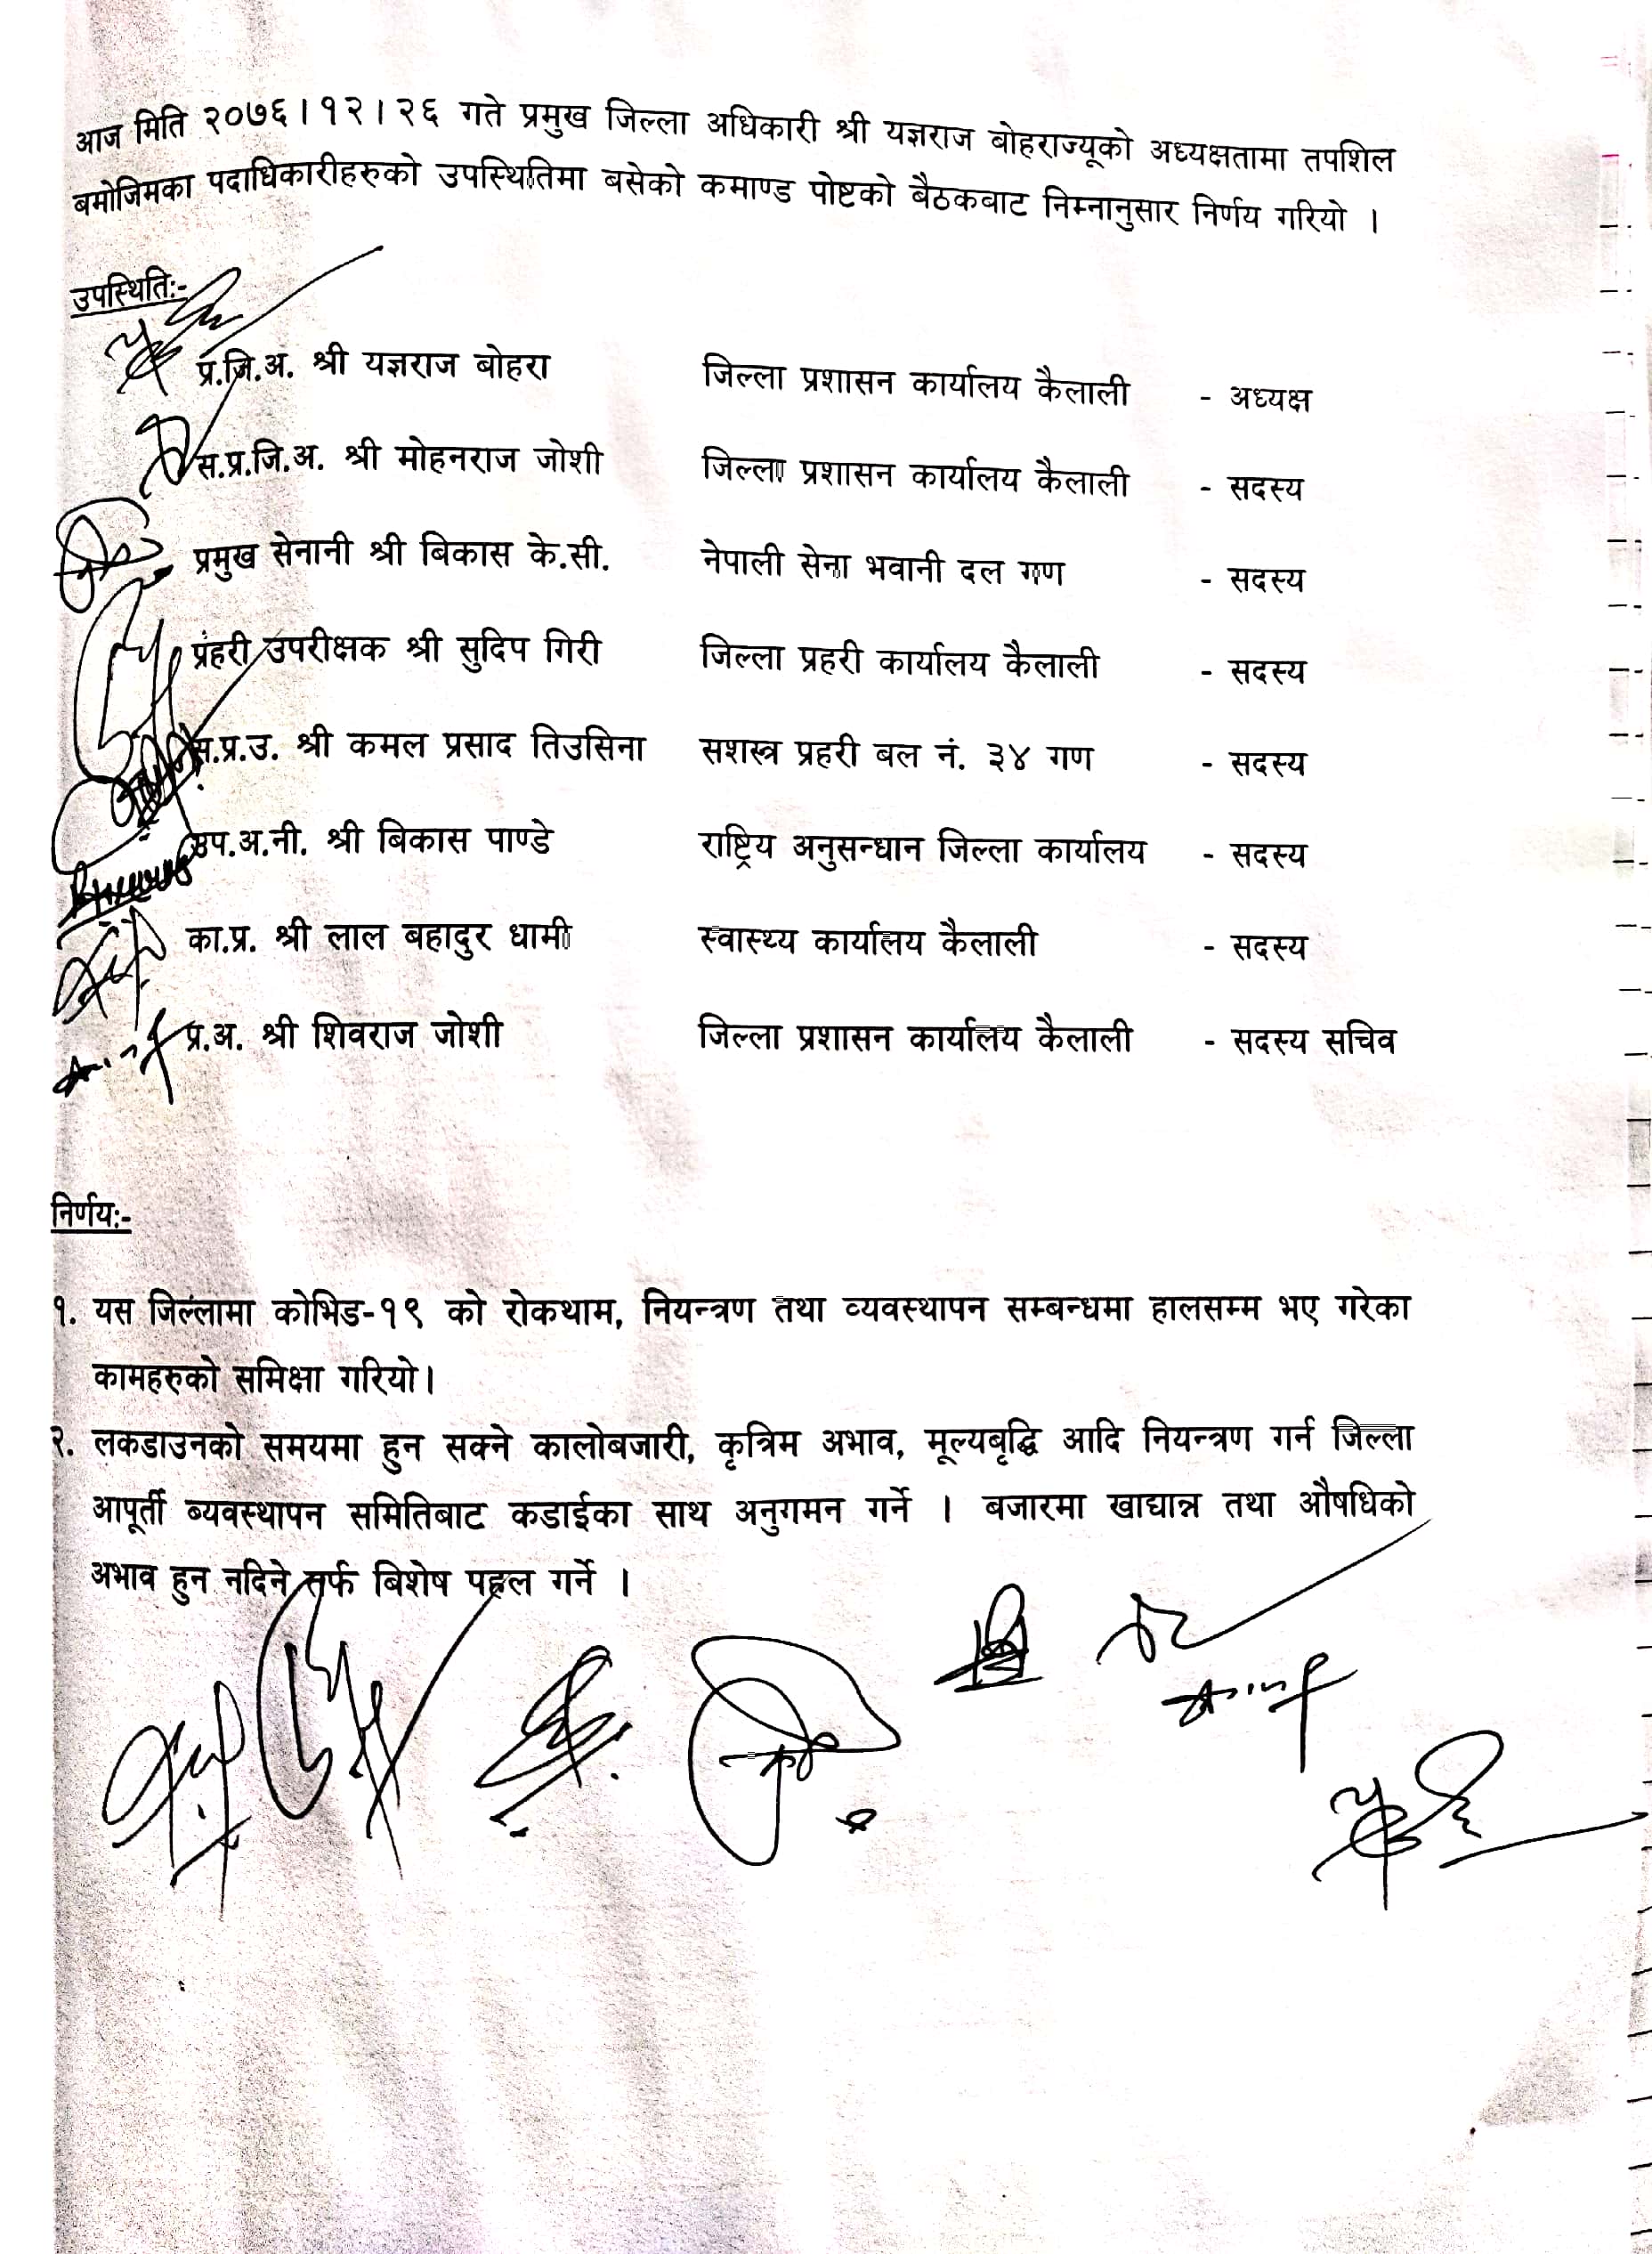 आज मिति २०७६।१२।२६ गते प्रमुख जिल्ला अधिकारी श्री यज्ञराज बोहराज्यूको अध्यक्षतामा तपशिल
बमोजिमका पदाधिकारीहरुको उपस्थितिमा बसेको कमाण्ड पोष्टको बैठकबाट निम्नानुसार निर्णय गरियो ।
उपस्थितिः-
प्र.जि.अ. श्री यज्ञराज बोहरा जिल्ला प्रशासन कार्यालय कैलाली - अध्यक्ष
स.प्र.जि.अ. श्री मोहनराज जोशी जिल्ला प्रशासन कार्यालय कैलाली - सदस्य
प्रमुख सेनानी श्री बिकास के.सी. नेपाली सेना भवानी दल गण - सदस्य
प्रहरी उपरीक्षक श्री सुदिप गिरी जिल्ला प्रहरी कार्यालय कैलाली - सदस्य
स.प्र.उ. श्री कमल प्रसाद तिउसिना सशस्त्र प्रहरी बल नं. ३४ गण - सदस्य
उप.अ.नी. श्री बिकास पाण्डे राष्ट्रिय अनुसन्धान जिल्ला कार्यालय - सदस्य
का.प्र. श्री लाल बहादुर धामी स्वास्थ्य कार्यालय कैलाली - सदस्य
प्र.अ. श्री शिवराज जोशी जिल्ला प्रशासन कार्यालय कैलाली - सदस्य सचिव
निर्णयः-
१. यस जिल्लामा कोभिड-१९ को रोकथाम, नियन्त्रण तथा व्यवस्थापन सम्बन्धमा हालसम्म भए गरेका
कामहरुको समिक्षा गरियो।
२. लकडाउनको समयमा हुन सक्ने कालोबजारी, कृत्रिम अभाव, मूल्यबृद्धि आदि नियन्त्रण गर्न जिल्ला
आपूर्ती ब्यवस्थापन समितिबाट कडाईका साथ अनुगमन गर्ने । बजारमा खाद्यान्न तथा औषधिको
अभाव हुन नदिने तर्फ बिशेष पहल गर्ने ।